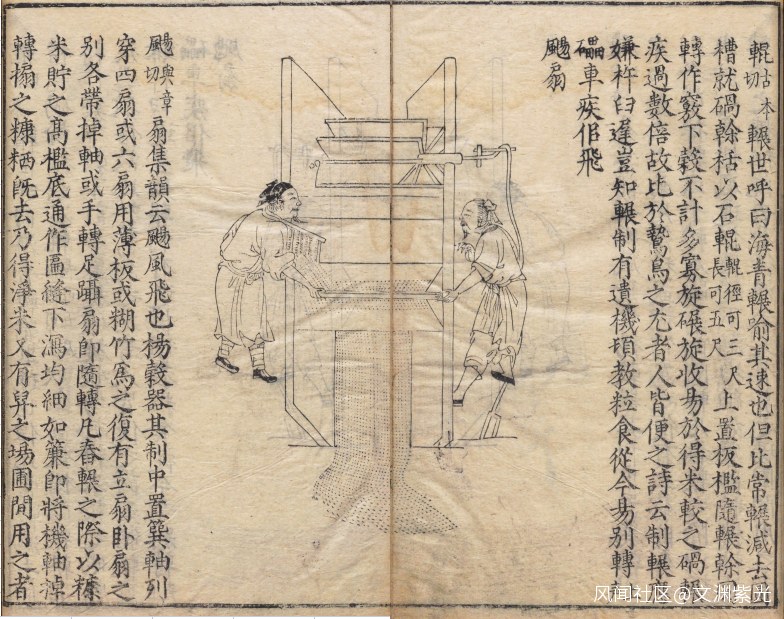 輥古本切輾世呼曰海青輾喻其速也但比常輾減去
槽就碢榦栝以石輥輥徑可三尺長可五尺上置板檻隨輾榦
轉作竅下穀不計多寡旋碾旋收易於得米較之碢輾
疾過數倍故比於鷙鳥之尤者人皆便之詩云制輾
嫌杵臼遲豈知輾制有遺機頃教粒食從今易別轉
礧車疾佀飛
颺扇
颺與章切扇集韻云颺風飛也楊穀器其制中置簨軸列
穿四扇或六扇用薄板或糊竹爲之復有立扇臥扇之
別各帶掉軸或手轉足躡扇卽隨轉凡舂輾之際以糠
米貯之高檻底通作匾縫下瀉均細如簾卽將機軸掉
轉搧之糠粞既去乃得淨米又有舁之場圃間用之者
风闻社区@文渊紫光